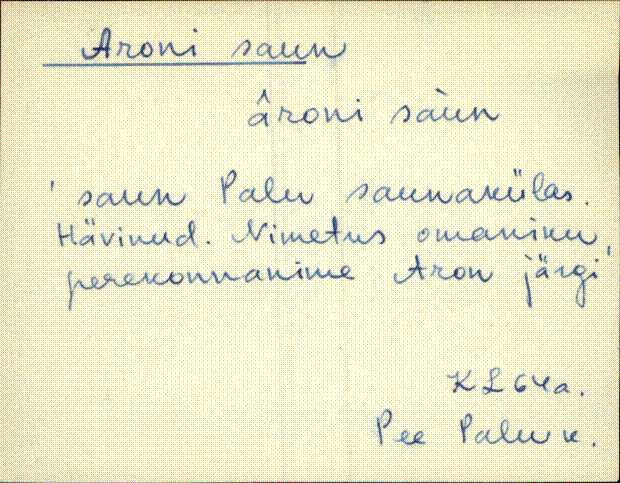 Aroni saun
âroni sàun
' saun Palu saunakülas.
Hävinud. Nimetus omaniku
perekonnanime Aron järgi'
KL 64a.
Pee Palu k.